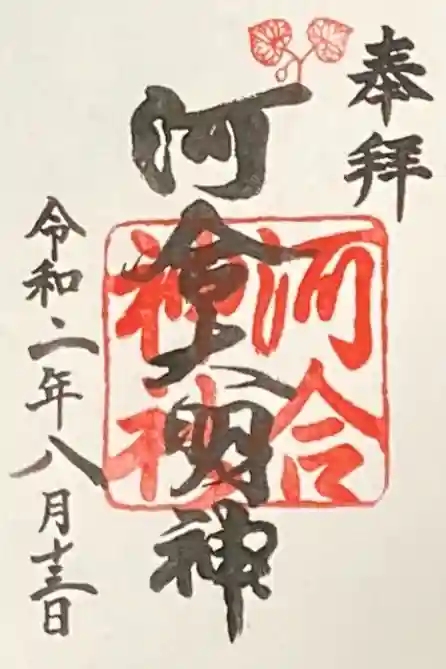 奉拝
河會大明神
河合
神社
令和二年八月十三日